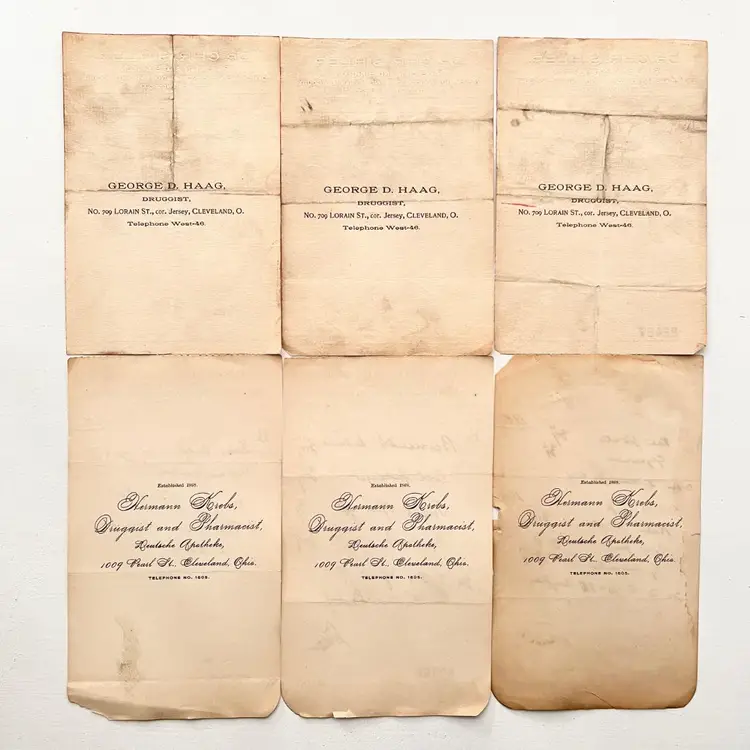 GEORGE D. HAAG,
DRUGGIST,
No. 709 LORAIN ST., cor. Jersey, CLEVELAND, O.
Telephone West-46.
GEORGE D. HAAG,
DRUGGIST,
No. 709 LORAIN ST., cor. Jersey, CLEVELAND, O.
Telephone West-46.
GEORGE D. HAAG,
DRUGGIST,
No. 709 LORAIN ST., cor. Jersey, CLEVELAND, O.
Telephone West-46.
Established
Hermann Krebs,
Druggist and Pharmacist,
Deutsche Apotheke,
1009 Pearl St., Cleveland, Ohio.
TELEPHONE NO.
Established
Hermann Krebs,
Druggist and Pharmacist,
Deutsche Apotheke,
1009 Pearl St., Cleveland, Ohio.
TELEPHONE NO.
Established
Hermann Krebs,
Druggist and Pharmacist,
Deutsche Apotheke,
1009 Pearl St., Cleveland, Ohio.
TELEPHONE NO.